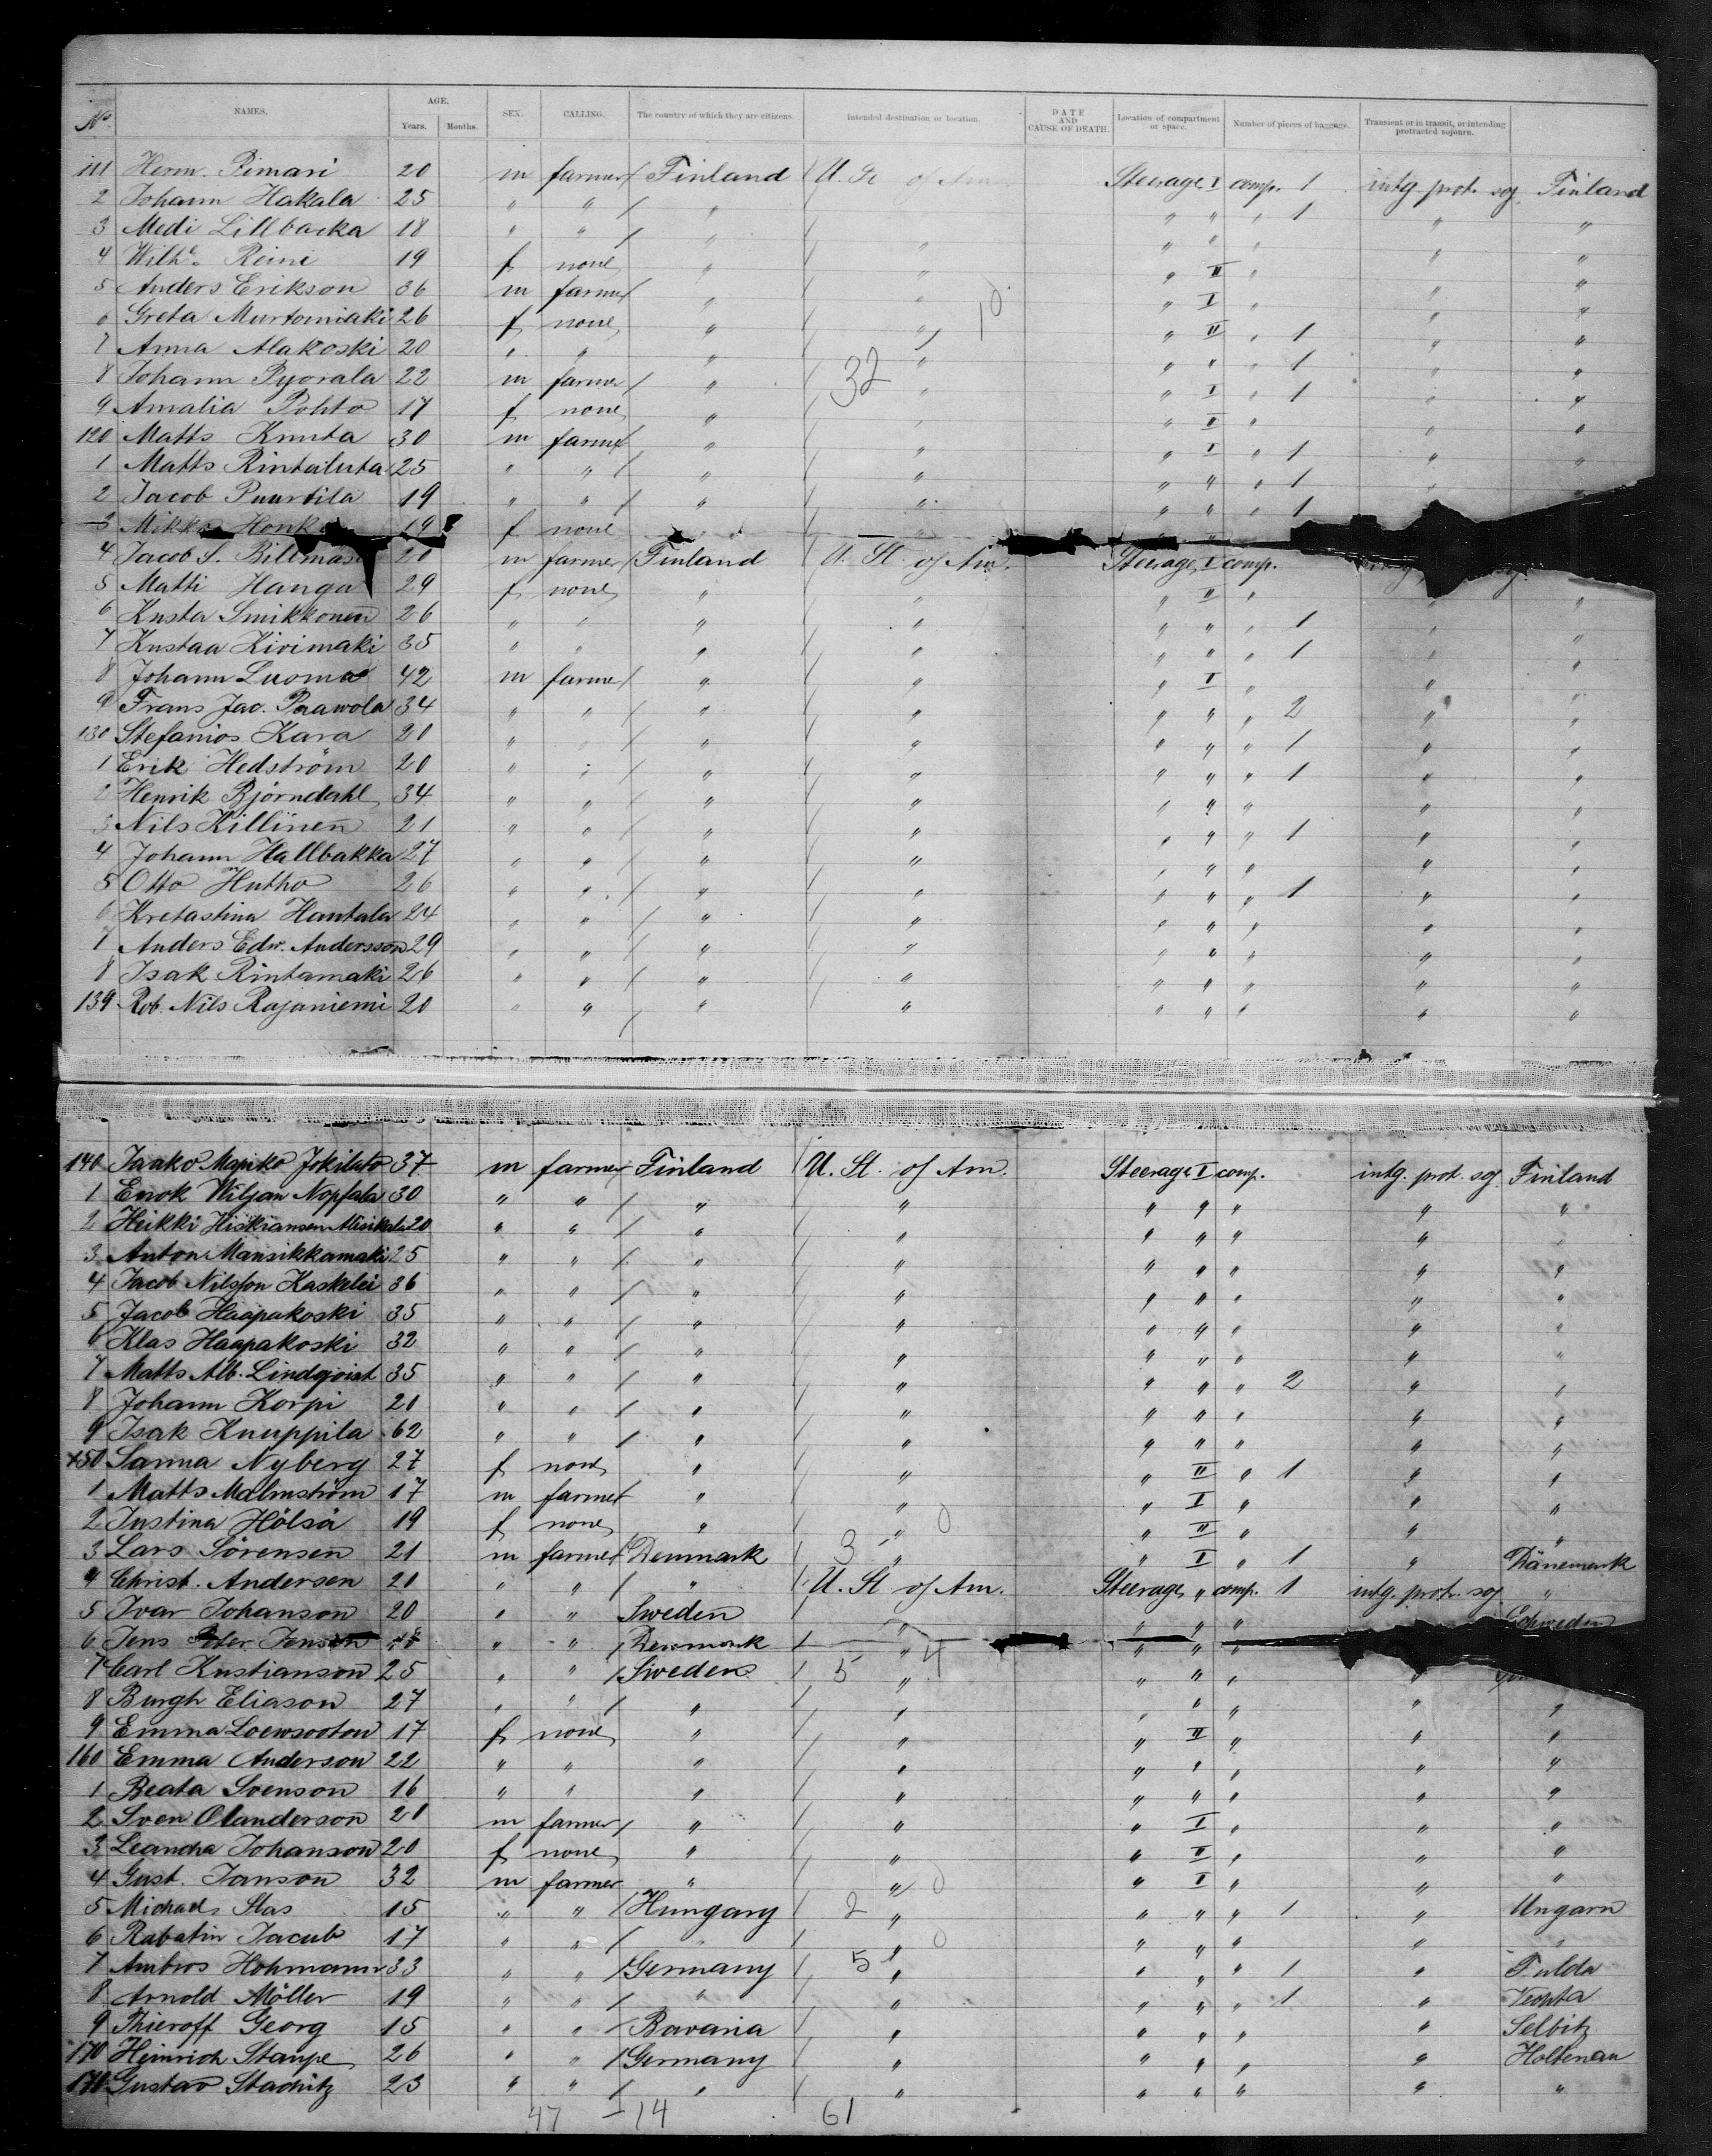 No. NAMES. AGE. Years. Months. SEX. CALLING. The country of which they are citizens. Intended destination or location. DATE AND CAUSE OF DEATH. Location of compartment or space. Number of pieces of baggage. Transient or in transit, or intending protracted sojourn.
111 Herm. Pimari 20 m farmer Finland U. St. of Am. Steerage I comp. 1 intg. prot. soj. Finland
2 Johann Hakala 25 " " " " " " 1 " "
3 Medi Lillbacka 18 " " " " " " " " "
4 Wilh. Reini 19 f none " " " II " " "
5 Anders Erikson 36 m farmer " " " I " " "
6 Greta Murtomiaki 26 f none " " 10 " II " 1 " "
7 Anna Alakoski 20 " " " " " " " 1 " "
8 Johann Pyorala 22 m farmer " 32 " " I " 1 " "
9 Amalia Pohto 17 f none " " " II " " "
120 Matts Knuta 30 m farmer " " " I " 1 " "
1 Matts Rintaluta 25 " " " " " " " 1 " "
2 Jacob Puurtila 19 " " " " " " " 1
3 Mikko Honk 19 f none
4 Jacob S. 20 m farmer Finland U. St. of Am. Steerage I comp.
5 Matti Hanga 29 f none " " " II " " "
6 Kusta Smikkonen 26 " " " " " " " 1 " "
7 Kustaa Kivimaki 35 " " " " " " " 1 " "
8 Johann Luoma 42 m farmer " " " I " " "
9 Frans Jac. Paawola 34 " " " " " " " 2 " "
130 Stefanios Kara 20 " " " " " " " 1 " "
1 Erik Hedström 20 " " " " " " " 1 " "
2 Henrik Björndahl 34 " " " " " " " " "
3 Nils Killinen 21 " " " " " " " 1 " "
4 Johann Hallbakka 27 " " " " " " " " "
5 Otto Hutho 26 " " " " " " " 1 " "
6 Kretastina Hantala 24 " " " " " " " " "
7 Anders Edw. Andersson 29 " " " " " " " " "
8 Isak Rintamaki 26 " " " " " " " " "
139 Rob. Nils Rajaniemi 20 " " " " " " " " "
140 Jaako Mapiko Jokilato 37 m farmer Finland U. St. of Am. Steerage I comp. intg. prot. soj. Finland
1 Enok Wiljan Nopfala 30 " " " " " " " " "
2 Heikki Hiskiansen 20 " " " " " " " " "
3 Anton Mansikkamaki 25 " " " " " " " " "
4 Jacob Nilsson Kaskelei 36 " " " " " " " " "
5 Jacob Haapakoski 35 " " " " " " " " "
6 Klas Haapakoski 32 " " " " " " " " "
7 Matts Alb. Lindqvist 35 " " " " " " " 2 " "
8 Johann Korpi 20 " " " " " " " " "
9 Isak Knuppila 62 " " " " " " " " "
150 Sanna Nyberg 27 f none " " " II " 1 " "
1 Matts Malmström 17 m farmer " " " I " " "
2 Justina Hölsä 19 f none " " 0 " II " " "
3 Lars Sörensen 21 m farmer Denmark 3 " " I " 1 " Dänemark
4 Christ. Andersen 20 " " " U. St of Am. Steerage " comp. 1 intg. prot. soj. "
5 Ivar Johanson 20 " " Sweden " " " " Schweden
6 Jens Peter Jensen " " Denmark " " " "
7 Carl Kristianson 25 " " Sweden 5 " 4 " " " "
8 Burgh Eliason 27 " " " " " " " " "
9 Emma 17 f none " " " II " " "
160 Emma Anderson 22 " " " " " " " " "
1 Beata Svenson 16 " " " " " " " " "
2 Sven Olanderson 20 m farmer " " " I " " "
3 Leandra Johanson 20 f none " " " II " " "
4 Gust. Janson 32 m farmer " " 0 " I " " "
5 Michael Stas 15 " " Hungary 2 " " " " 1 " Ungarn
6 Rabatin Jacub 17 " " " " 0 " " " " "
7 Ambros Hohmann 33 " " Germany 5 " " " " 1 " Fulda
8 Arnold Möller 19 " " " " " " " 1 " Vechta
9 Thieroff Georg 15 " " Bavaria " " " " " Selbitz
170 Heinrich Stanpe 26 " " Germany " " " " " Holtenau
171 Gustav Stachitz 23 " " " " " " " " "
47 – 14 61